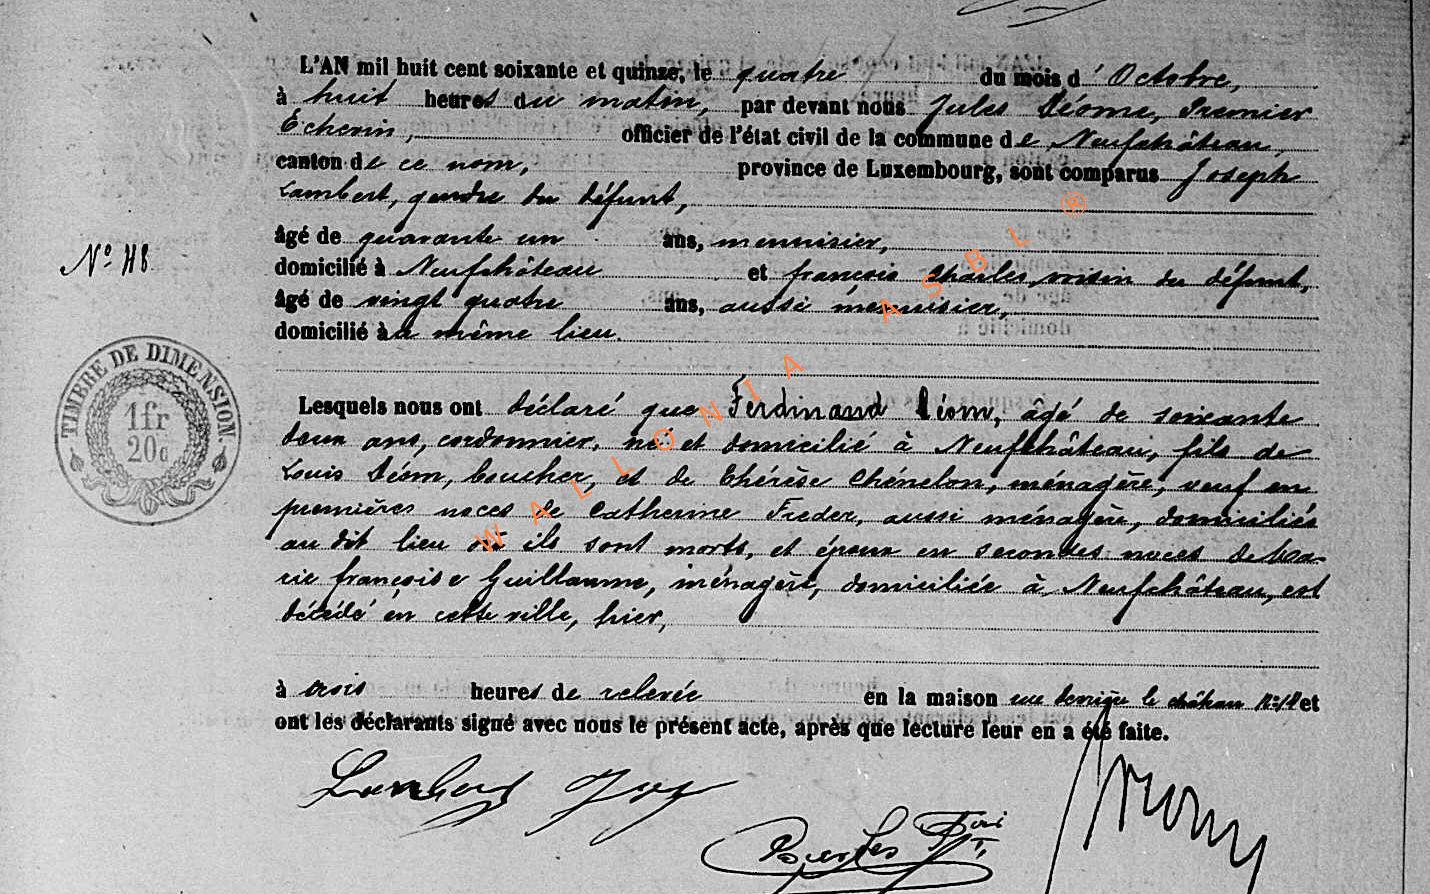 L'AN mil huit cent soixante et quinze, le quatre du mois d'Octobre,
à huit heures du matin, par devant nous Jules Déome, Premier
Echevin, officier de l'état civil de la commune de Neufchâteau,
canton de ce nom, province de Luxembourg, sont comparus Joseph
Lambert, gendre du défunt,
âgé de quarante un ans, menuisier,
N° 48
domicilié à Neufchâteau et françois Charles, voisin du défunt,
âgé de vingt quatre ans, aussi menuisier,
domicilié à même lieu.
TIMBRE DE DIMENSION.
1fr
20c
Lesquels nous ont déclaré que Ferdinand Déom, âgé de soixante
deux ans, cordonnier, né et domicilié à Neufchâteau, fils de
Louis Déom, boucher, et de Thérèse Chénelon, ménagère, veuf en
premières noces de Catherine Freder, aussi ménagère, domiciliés
au dit lieu où ils sont morts, et époux en secondes noces de Ma-
rie françoise Guillaume, ménagère, domiciliée à Neufchâteau, est
décédé en cette ville, hier,
à trois heures de relevée en la maison rue derrière le château et
ont les déclarants signé avec nous le présent acte, après que lecture leur en a été faite.
Lambert Jos
Charles
WALLONIA ASBL ®